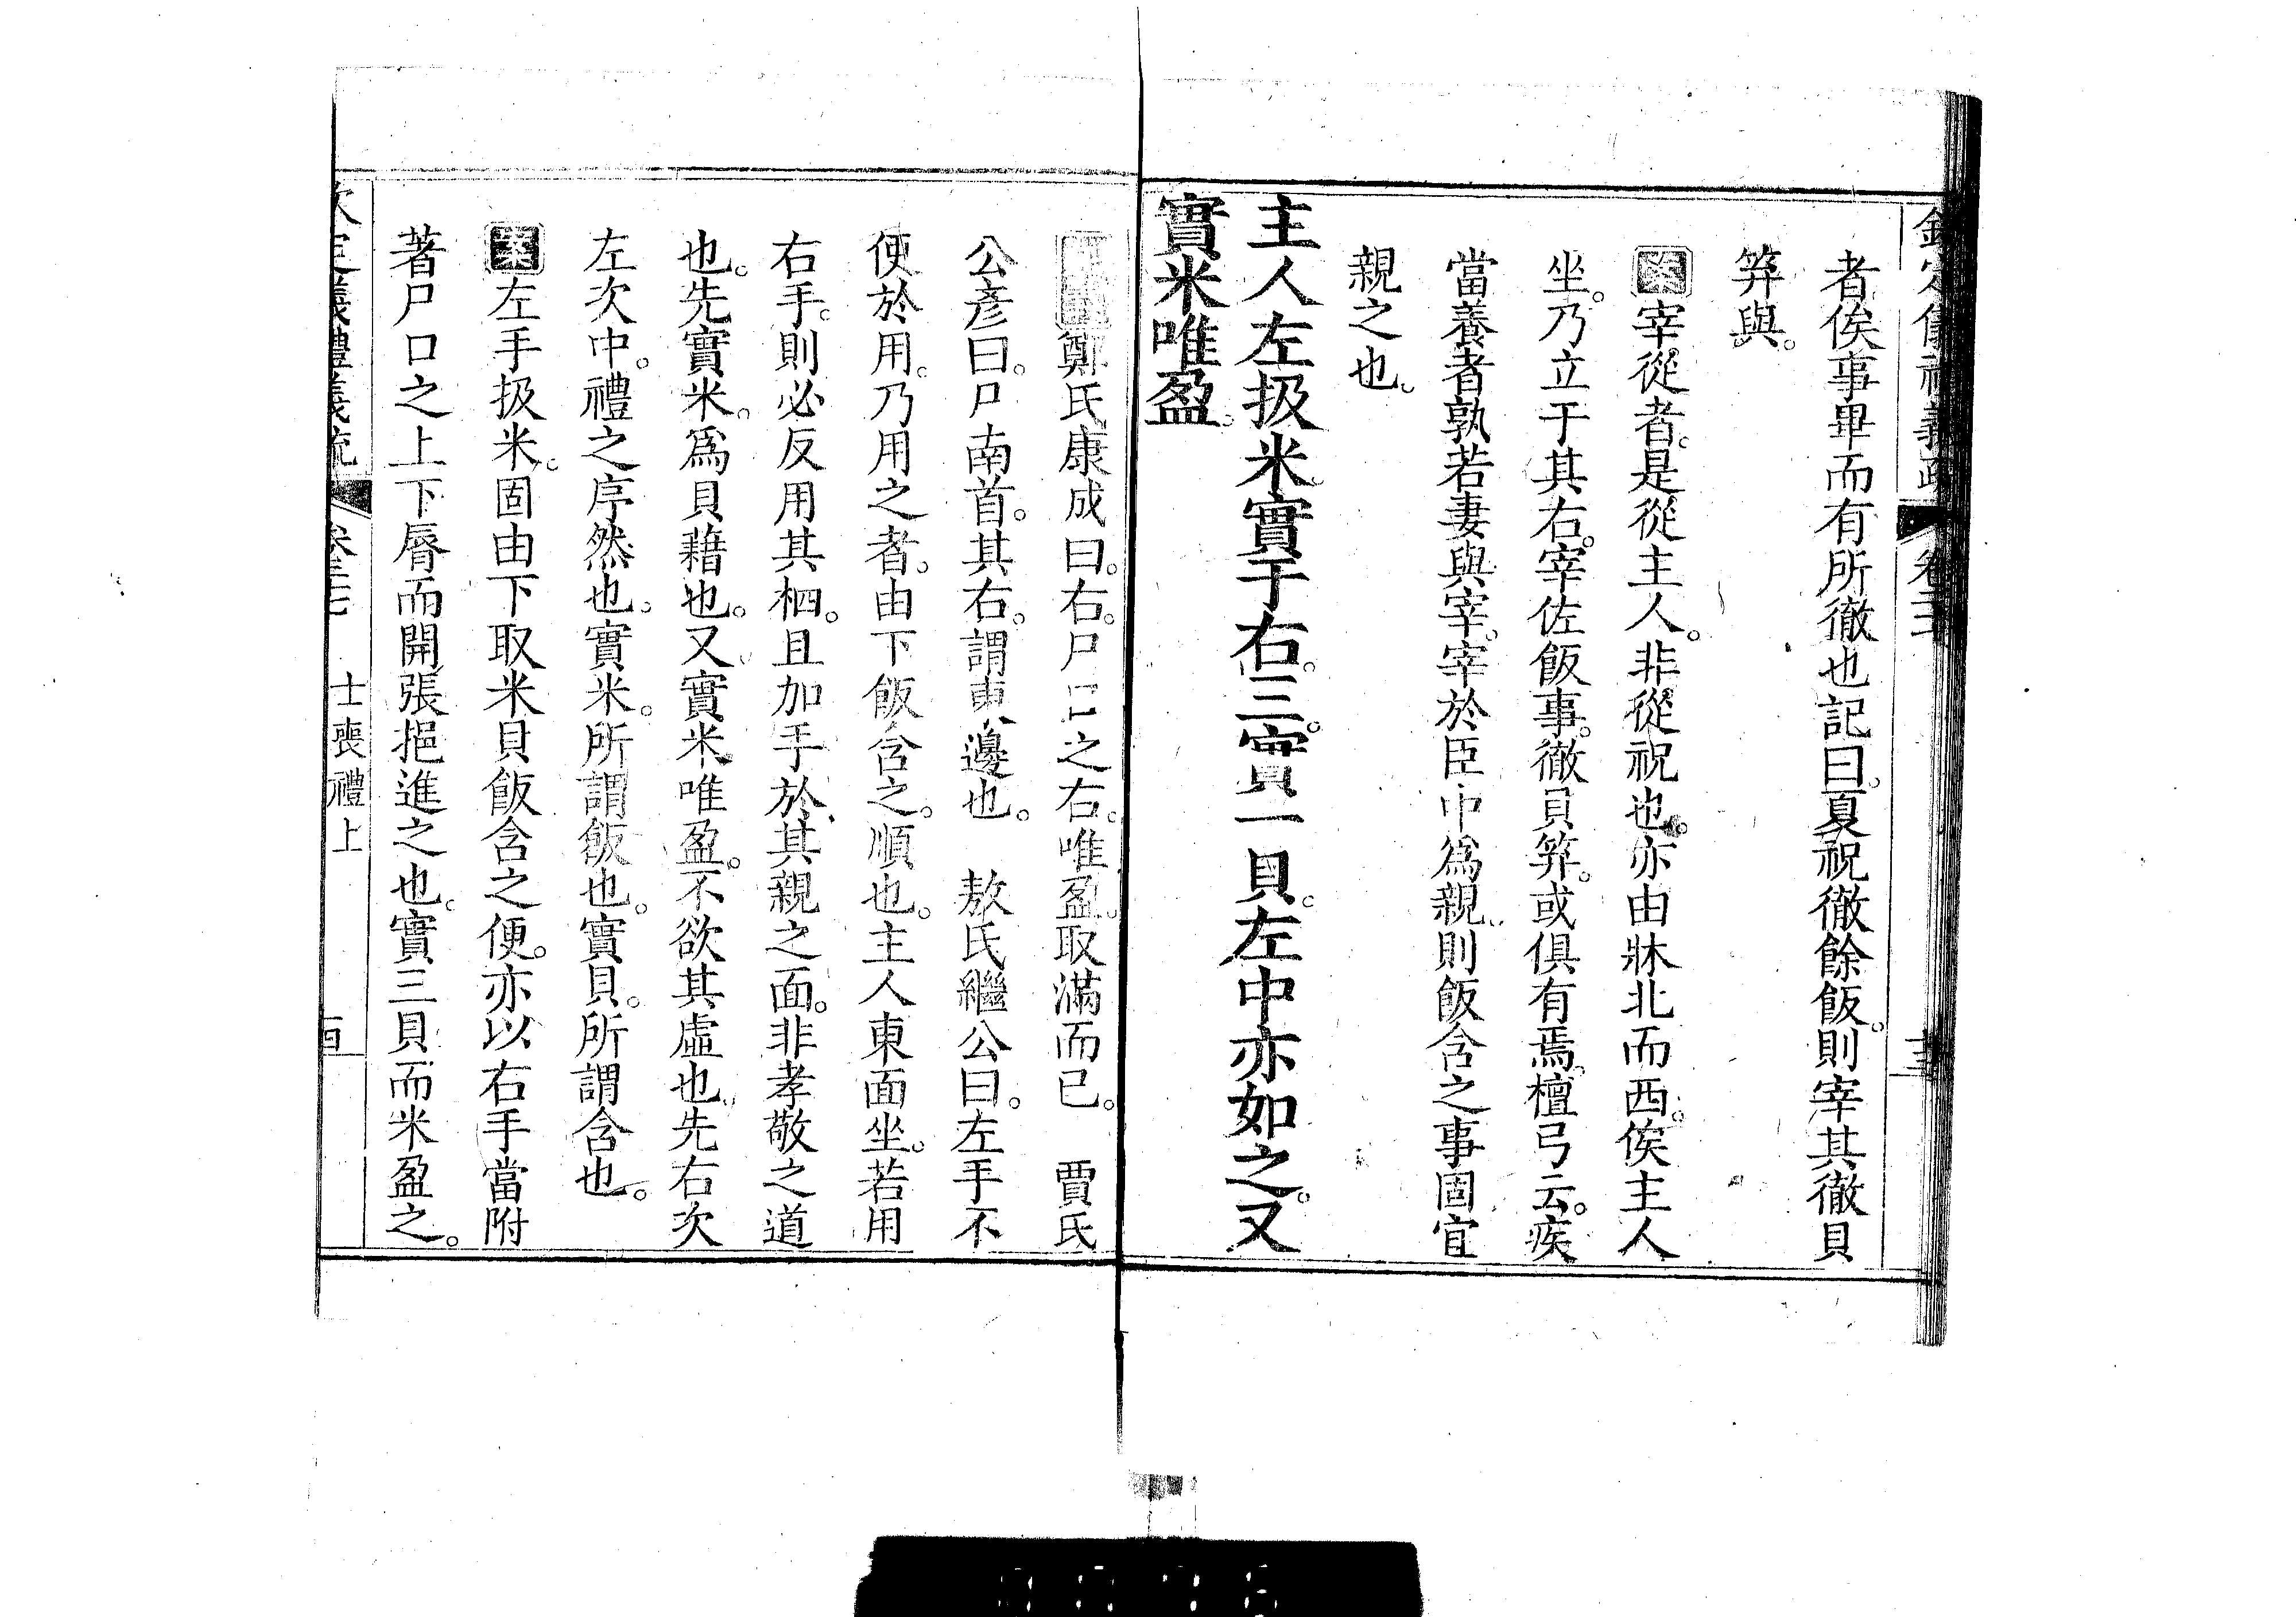 欽定儀禮義疏 卷二十七
者俟事畢而有所徹也記曰。夏祝徹餘飯。則宰其徹貝
笲與。
案宰從者。是從主人。非從祝也。亦由牀北而西。俟主人
坐。乃立于其右。宰佐飯事。徹貝笲。或俱有焉。檀弓云。疾
當養者孰若妻與宰。宰於臣中爲親。則飯含之事固宜
親之也。
主人左扱米。實于右。三。實一貝。左中亦如之。又
實米唯盈。
鄭氏康成曰。右。尸口之右。唯盈。取滿而已。 賈氏
公彥曰。尸南首。其右。謂東邊也。 敖氏繼公曰。左手不
便於用。乃用之者。由下飯含之。順也。主人東面坐。若用
右手。則必反用其柶。且加手於其親之面。非孝敬之道
也。先實米。爲貝藉也。又實米唯盈。不欲其虛也。先右次
左次中。禮之序然也。實米。所謂飯也。實貝。所謂含也。
案左手扱米。固由下取米貝飯含之便。亦以右手當附
著尸口之上下脣而開張挹進之也。實三貝而米盈之。
欽定儀禮義疏 卷二十七 士喪禮上